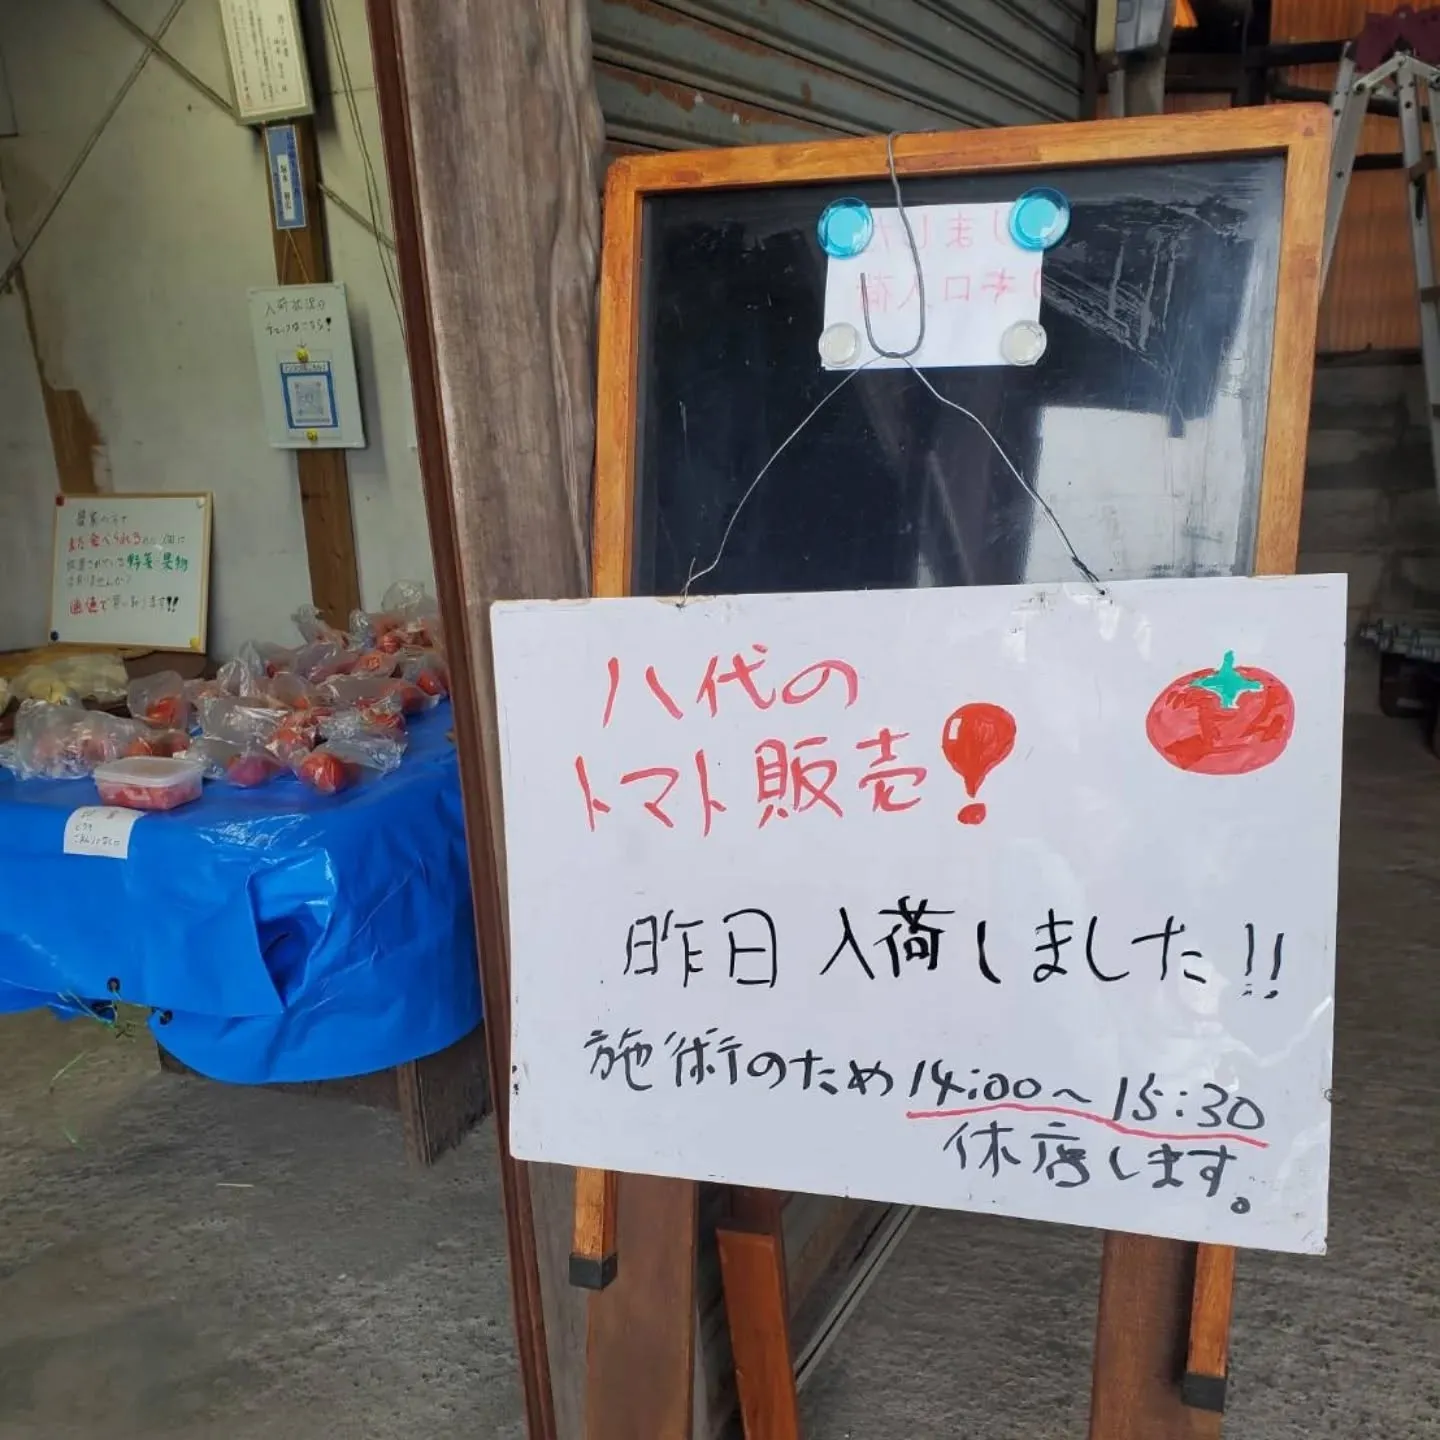 入荷状況の
チェックはこちら!
農家の方で
まだ食べられるのに畑に
放置されている野菜・果物
はありませんか?
適価で買い取ります!!
八代の
トマト販売!
昨日入荷しました!!
施術のため14:00～15:30
休店します。